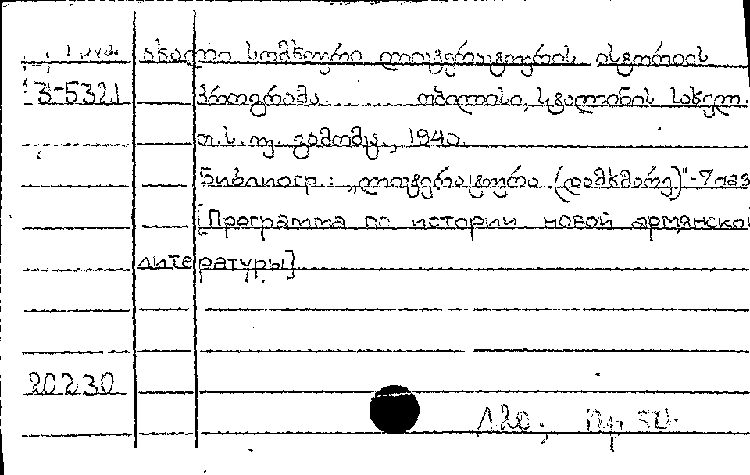 ახალი სომხური ლიტერატურის ისტორიის
3-5321 პროგრამა...... თბილისი, სტალინის სახელ.
თ. ს. უ. გამომც., 1940.
Библиогр.: „ლიტერატურა (დამხმარე)"-7 назв
[Программа по истории новой армянской
литературы]
20230
120;